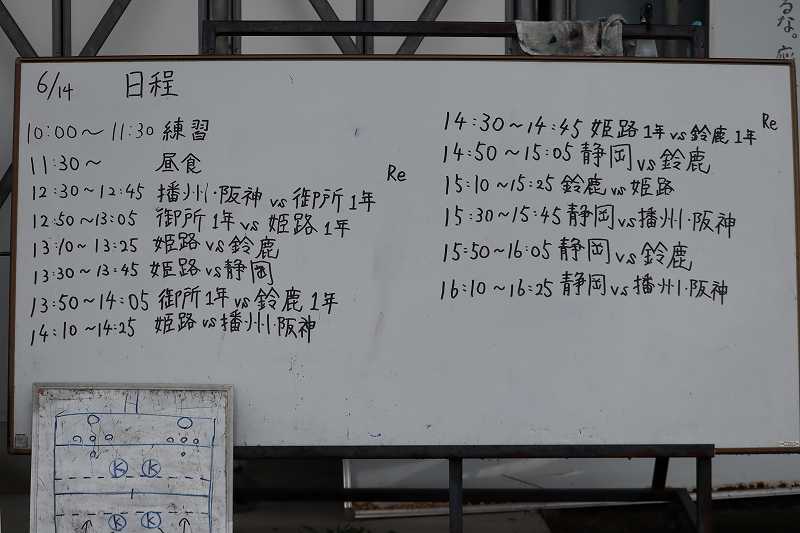 6/14 日程
10:00～11:30 練習
11:30～ 昼食
Re
12:30～12:45 播州・阪神 vs 御所1年
12:50～13:05 御所1年 vs 姫路1年
13:10～13:25 姫路 vs 鈴鹿
13:30～13:45 姫路 vs 静岡
13:50～14:05 御所1年 vs 鈴鹿1年
14:10～14:25 姫路 vs 播州・阪神
Re
14:30～14:45 姫路1年 vs 鈴鹿1年
14:50～15:05 静岡 vs 鈴鹿
15:10～15:25 鈴鹿 vs 姫路
15:30～15:45 静岡 vs 播州・阪神
15:50～16:05 静岡 vs 鈴鹿
16:10～16:25 静岡 vs 播州・阪神
るな。
K K
K K